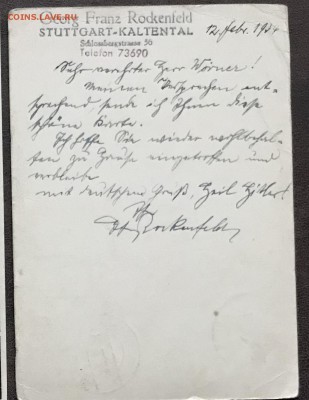 COINS.LAVE.RU
Georg Franz Rockenfeld
STUTTGART-KALTENTAL
Schlossbergstrasse 56
Telefon 73690
12. Febr. 19
Sehr verehrter Herr Wörner!
Meinem Versprechen ent-
sprechend sende ich Ihnen diese
schöne Karte.
Ich hoffe Sie wieder wohlbehal-
ten zu Hause eingetroffen und
verbleibe
mit deutschem Gruß, Heil Hitler!
Ihr
Rockenfeld